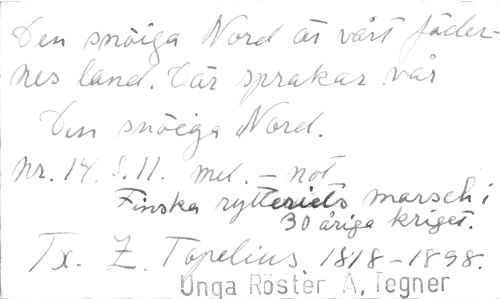 Den snöiga Nord är vårt fäder-
nes land. Där sprakar vår
Den snöiga Nord.
Nr. 14. S. 11. mel. – not
Finska rytteriets marsch i
30 åriga kriget.
Tx. Z. Topelius 1818–1898.
Unga Röster A. Tegner